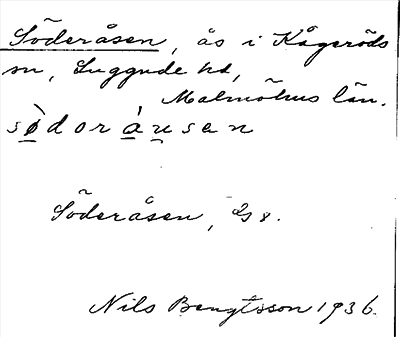 Söderåsen, ås i Kågeröds
sn, Luggude hd,
Malmöhus län.
sødoråusen
Söderåsen,
Nils Bengtsson 1936.